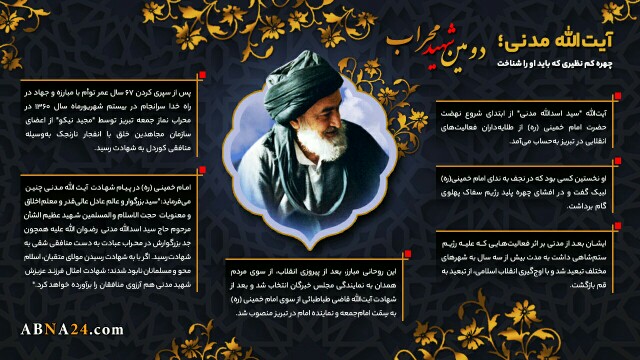 آیت‌الله مدنی؛
دومین شهید محراب
چهره کم نظیری که باید او را شناخت
آیت‌الله "سید اسدالله مدنی" از ابتدای شروع نهضت
حضرت امام خمینی (ره) از طلایه‌داران فعالیت‌های
انقلابی در تبریز به‌حساب می‌آمد.
او نخستین کسی بود که در نجف به ندای امام خمینی(ره)
لبیک گفت و در افشای چهره پلید رژیم سفاک پهلوی
گام برداشت.
ایشان بعد از مدتی بر اثر فعالیت‌هایی که علیه رژیم
ستم‌شاهی داشت به مدت بیش از سه سال به شهرهای
مختلف تبعید شد و با اوج‌گیری انقلاب اسلامی، از تبعید به
قم بازگشت.
این روحانی مبارز، بعد از پیروزی انقلاب، از سوی مردم
همدان به نمایندگی مجلس خبرگان انتخاب شد و بعد از
شهادت آیت‌الله قاضی طباطبائی از سوی امام خمینی (ره)
به سِمَت امام‌جمعه و نماینده امام در تبریز منصوب شد.
پس از سپری کردن ۶۷ سال عمر توأم با مبارزه و جهاد در
راه خدا سرانجام در بیستم شهریورماه سال ۱۳۶۰ در
محراب نماز جمعه تبریز توسط "مجید نیکو" از اعضای
سازمان مجاهدین خلق با انفجار نارنجک به‌وسیله
منافقی کوردل به شهادت رسید.
امام خمینی (ره) در پیام شهادت آیت الله مدنی چنین
می‌فرماید: "سید بزرگوار و عالم عادل عالی‌قدر و معلم اخلاق
و معنویات حجت الاسلام و المسلمین شهید عظیم الشأن
مرحوم حاج سید اسدالله مدنی رضوان الله علیه همچون
جد بزرگوارش در محراب عبادت به دست منافقی شقی به
شهادت رسید. اگر با به شهادت رسیدن مولای متقیان، اسلام
محو و مسلمانان نابود شدند؛ شهادت امثال فرزند عزیزش
شهید مدنی هم آرزوی منافقان را برآورده خواهد کرد."
ABNA24.com